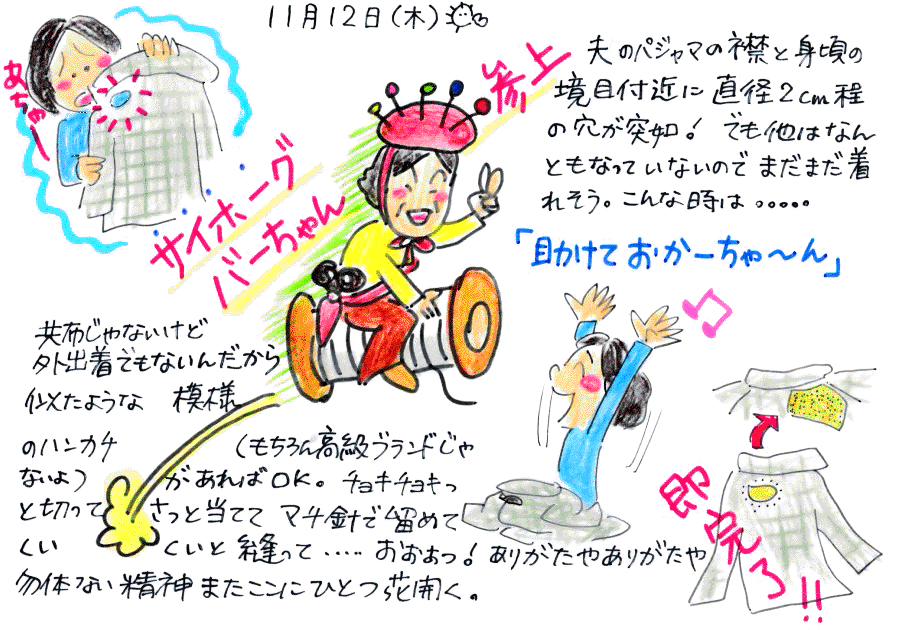 11月12日(木)
あちゃー
サイホーグ
バーちゃん
参上
夫のパジャマの襟と身頃の
境目付近に直径2cm程
の穴が突如! でも他はなん
ともなっていないのでまだまだ着
れそう。こんな時は。。。。。
「助けておかーちゃ〜ん」
共布じゃないけど
外出着でもないんだから
似たような 模様
のハンカチ (もちろん高級ブランドじゃ
ないよ) があればOK。チョキチョキっ
と切って さっと当ててマチ針で留めて
くい くいと縫って‥‥‥おおぉっ!ありがたやありがたや
勿体ない精神またここにひとつ花開く。
即完了!!